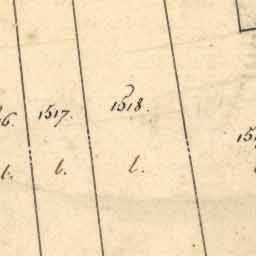 6.
1517.
1518.
151
l.
b.
l.